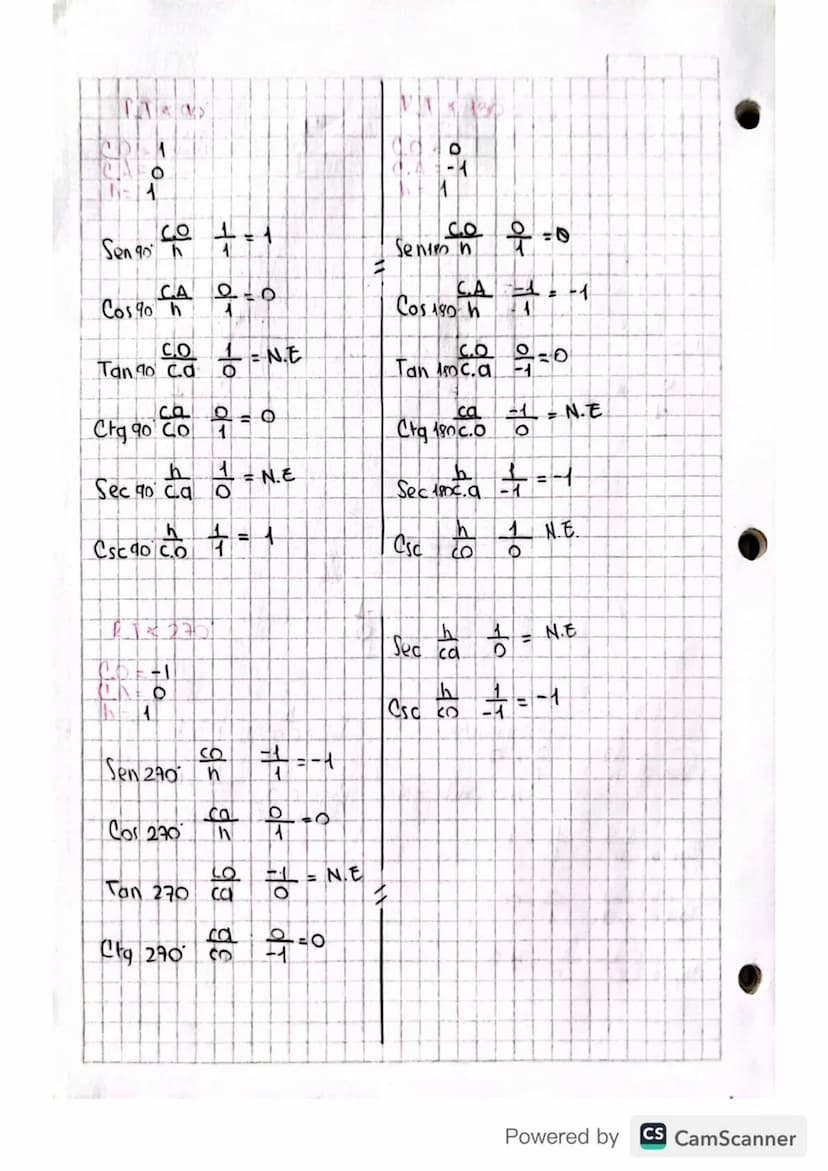 R.T x 90°
C.O = 1
C.A = 0
h = 1
Sen 90° C.O/h 1/1 = 1
Cos 90 C.A/h 0/1 = 0
Tan 90° C.O/C.a 1/0 = N.E
Ctg 90° C.a/C.O 0/1 = 0
Sec 90° h/C.a 1/0 = N.E
Csc 90° h/C.O 1/1 = 1
R.T x 180
C.O = 0
C.A = -1
h = 1
Sen 180 C.O/h 0/1 = 0
Cos 180 C.A/h -1/1 = -1
Tan 180 C.O/C.a 0/-1 = 0
Ctg 180 ca/C.O -1/0 = N.E
Sec 180 h/C.a 1/-1 = -1
Csc h/co 1/0 N.E.
R.T x 270°
C.O = -1
C.A = 0
h = 1
Sen 270° co/h -1/1 = -1
Cos 270° ca/h 0/1 = 0
Tan 270 co/ca -1/0 = N.E
Ctg 270° ca/co 0/-1 = 0
Sec h/ca 1/0 = N.E
Csc h/co 1/-1 = -1
Powered by CS CamScanner